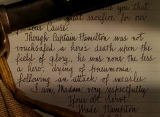 you that
sacrifice for our
Cause.
Though Captain Hamilton was not
vouchsafed a hero's death upon the
field of glory, he was none the less
a hero, dying of pneumonia
following an attack of measles.
I am, Madam, very respectfully,
Your Obt. Servt.
Wade Hampton